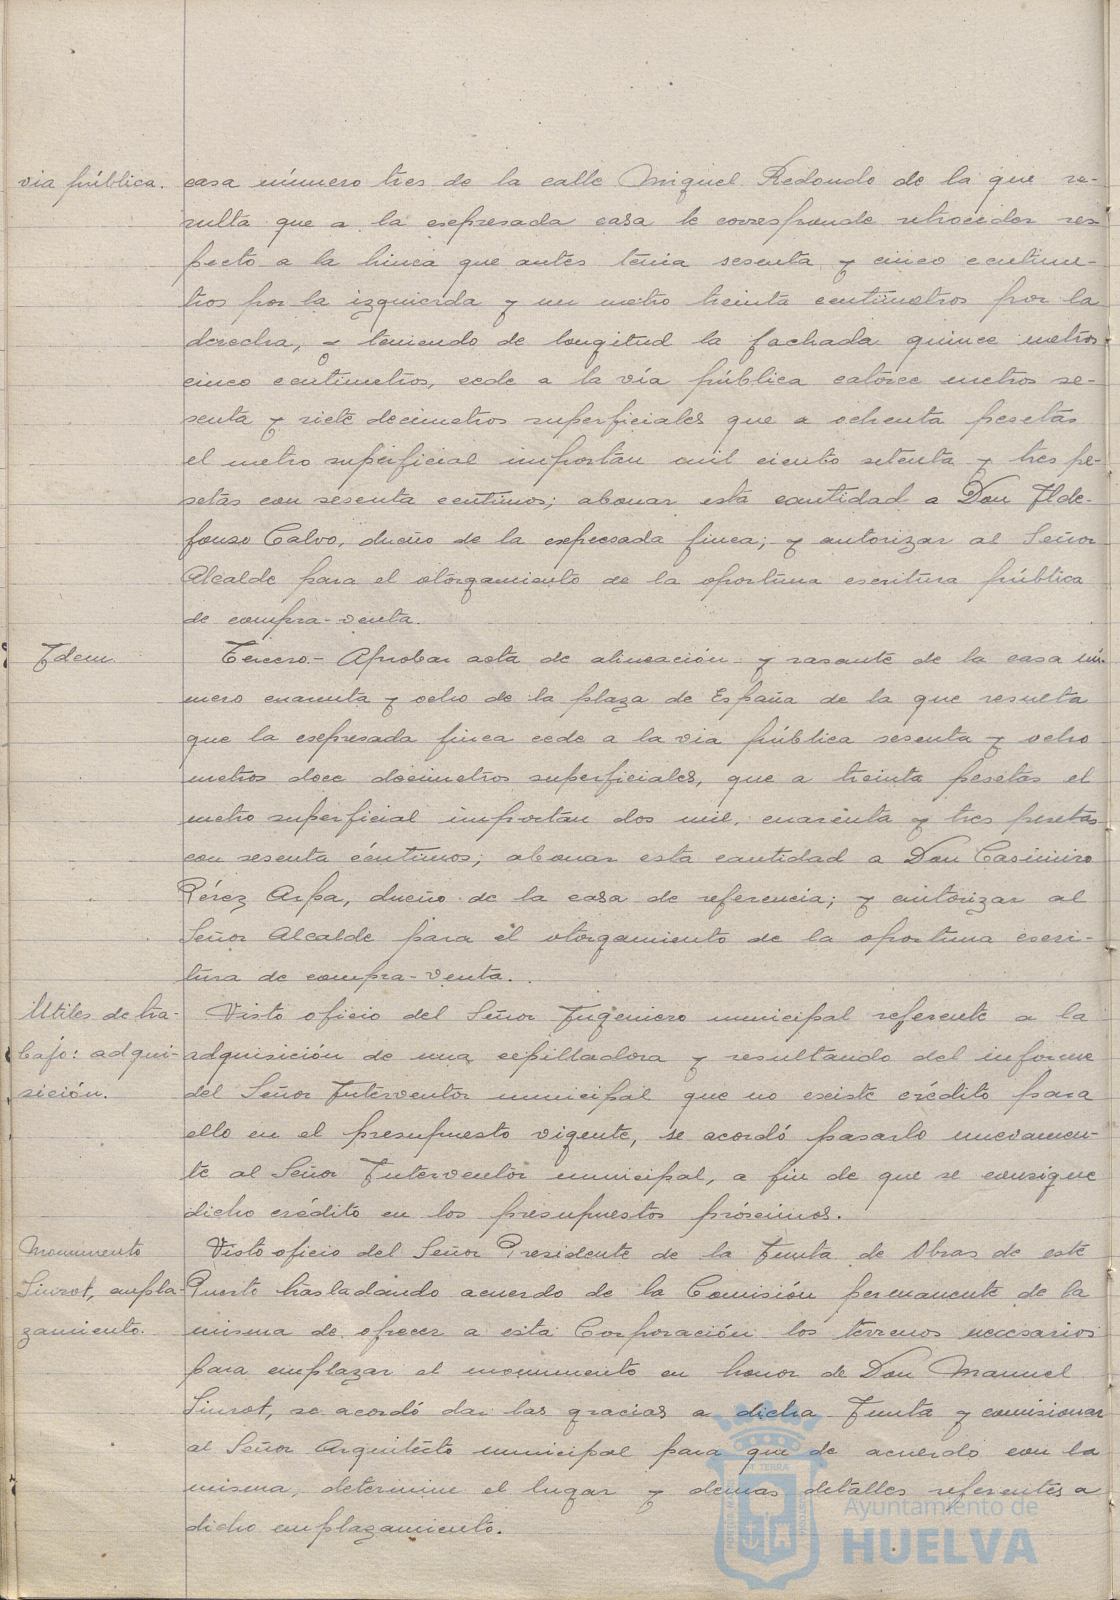 via pública.
casa número tres de la calle Miguel Redondo de la que re-
sulta que a la expresada casa le corresponde retroceder res-
pecto a la linea que antes tenia sesenta y cinco centime-
tros por la izquierda y un metro treinta centimetros por la
derecha, y teniendo de longitud la fachada quince metros
cinco centimetros, cede a la vía pública catorce metros se-
senta y siete decimetros superficiales que a ochenta pesetas
el metro superficial importan mil ciento setenta y tres pe-
setas con sesenta centimos; abonar esta cantidad a Don Ilde-
fonso Calvo, dueño de la expresada finca; y autorizar al Señor
Alcalde para el otorgamiento de la oportuna escritura pública
de compra-venta.
Idem.
Tercero.- Aprobar acta de alineación y rasante de la casa nú-
mero cuarenta y ocho de la plaza de España de la que resulta
que la expresada finca cede a la via pública sesenta y ocho
metros doce decimetros superficiales, que a treinta pesetas el
metro superficial importan dos mil, cuarenta y tres pesetas
con sesenta céntimos; abonar esta cantidad a Don Casimiro
Pérez Arpa, dueño de la casa de referencia; y autorizar al
Señor Alcalde para el otorgamiento de la oportuna escri-
tura de compra-venta.
Utiles de tra-
bajo: adqui-
sición.
Visto oficio del Señor Ingeniero municipal referente a la
adquisición de una cepilladora y resultando del informe
del Señor Interventor municipal que no existe crédito para
ello en el presupuesto vigente, se acordó pasarlo nuevamen-
te al Señor Interventor municipal, a fin de que se consigne
dicho crédito en los presupuestos próximos.
Monumento
Siurot, empla-
zamiento.
Visto oficio del Señor Presidente de la Junta de Obras de este
Puerto trasladando acuerdo de la Comisión permanente de la
misma de ofrecer a esta Corporación los terrenos necesarios
para emplazar el monumento en honor de Don Manuel
Siurot, se acordó dar las gracias a dicha Junta y comisionar
al Señor Arquitecto municipal para que de acuerdo con la
misma, determine el lugar y demas detalles referentes a
dicho emplazamiento.
Ayuntamiento de
HUELVA